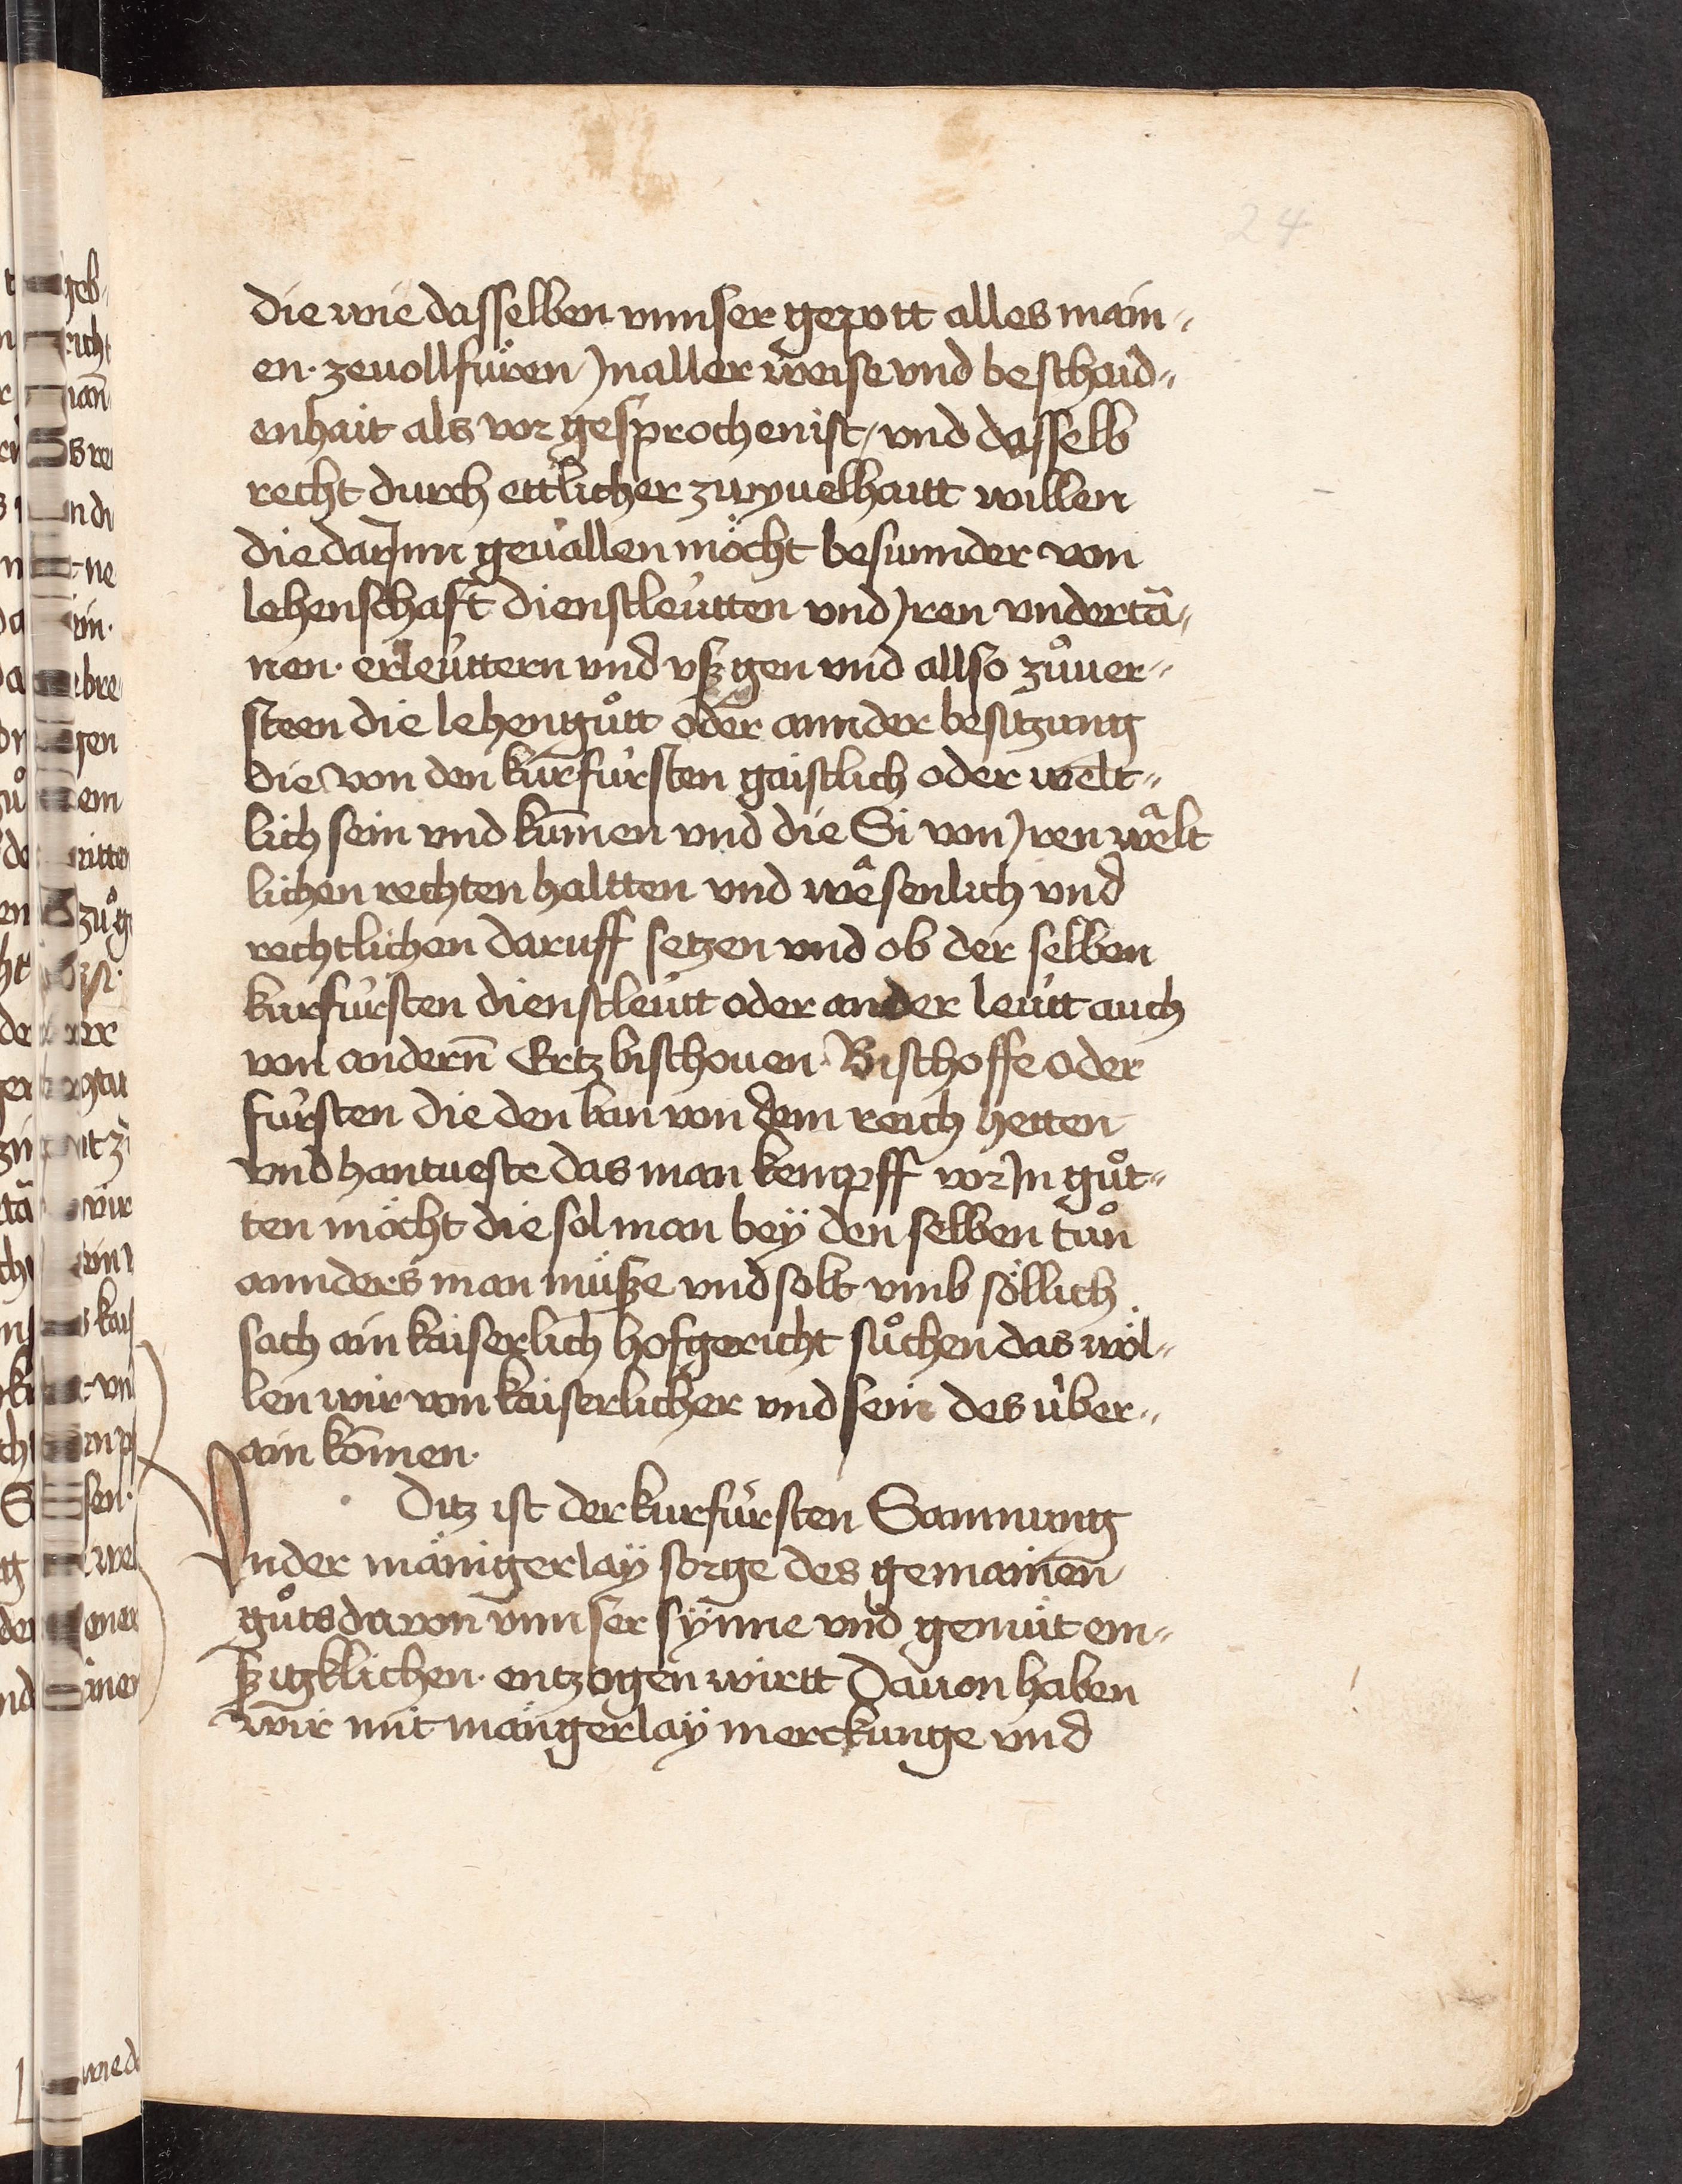 24
die wie dasselben vnnser gepott alles main„
en· zeuollfüren Jn aller weise vnd beschaid„
enhait als vor gesprochen ist / vnd dasselb
recht durch ettlicher zwyuelhaitt willen
die darJnn geuallen möcht besunnder von
lehenschaft dienstleütten vnd Jren vndertâ„
nen· erleüttern vnd vß gen vnd allso zůuer„
steen die lehengůtt oder annder besitzung
die von den kurfürsten gaistlich oder welt„
lich sein vnd kum̄en vnd die Si von Jren wêlt
lichen rechten haltten vnd wêsenlich vnd
rechtlichen daruff setzen vnd ob der selben
kurfürsten dienstleütt oder ander leütt auch
von andern̄ Ertzbischouen· Bischoffe oder
fürsten die den ban von dem reich hetten
vnd hantueste das man kempff vor Jn gůt„
ten möcht die sol man beÿ den selben tůn
annders man müße vnd solt vmb söllich
sach ain kaiserlich hofgericht sůchen das wöl„
len wir von kaiserlicher vnd sein des über„
ain kom̄en·
Ditz ist der kurfürsten Samnung
Jnder mänigerlaÿ sorge des gemainen
gůts da von vnnser sÿnne vnd gemüt em„
ßigklichen· entzogen wirtt Dauon haben
wir mit mängerlaÿ merckunge vnd